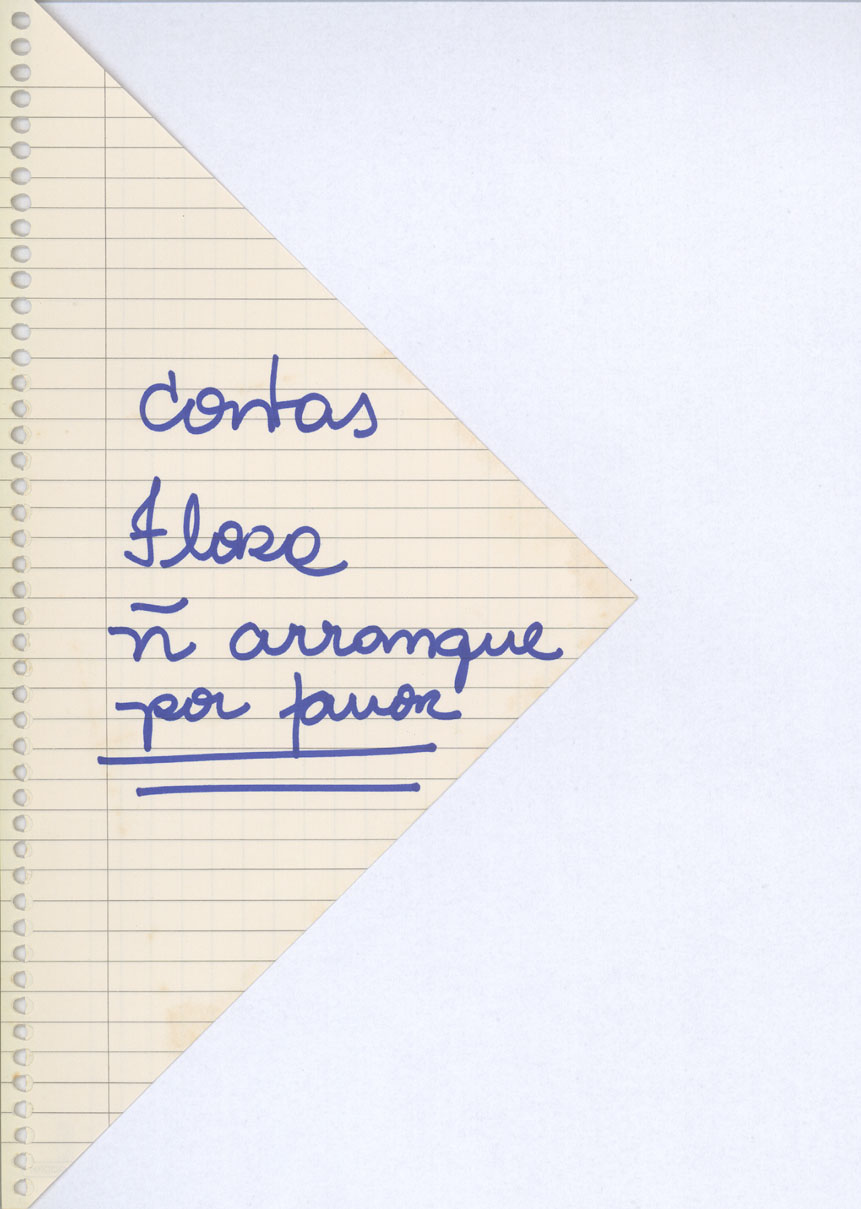 Contas
Flora
ñ arranque
por favor